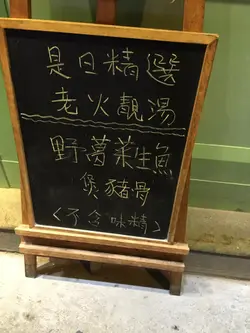 是日精選
老火靚湯
野葛菜生魚
煲豬骨
(不含味精)